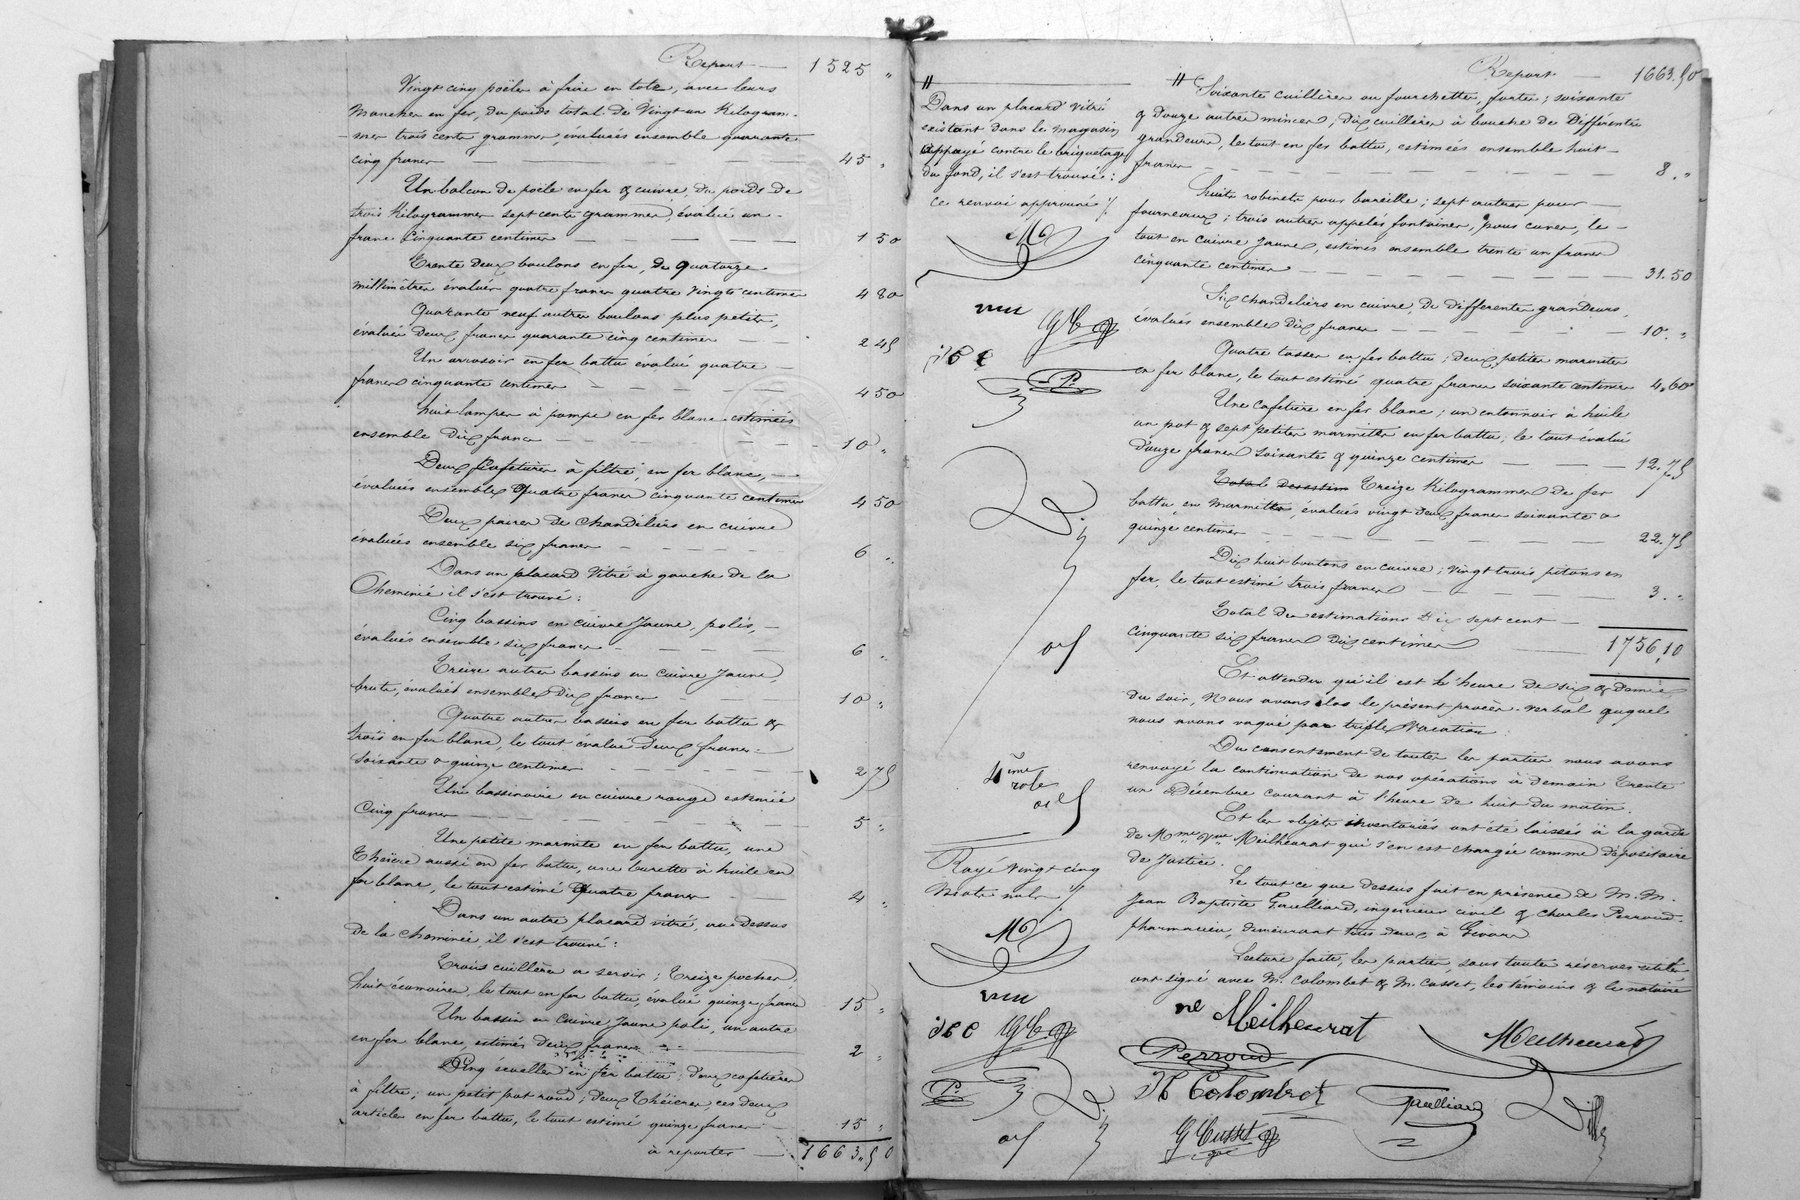 Report — 1525 "
Vingt cinq poëles à frire en tole, avec leurs
Manches en fer, du poids total de Vingt un Kilogram-
-mes trois cents grammes, évaluées ensemble quarante
cinq francs — 45 "
Un balcon de poële en fer & cuivre, du poids de
trois Kilogrammes sept cents grammes, évalué un
franc Cinquante centimes — 1 50
Trente deux boulons en fer, de quatorze
millimètres évalués quatre francs quatre vingts centimes 4 80
Quarante neuf autres boulons plus petits,
évalués deux francs quarante cinq centimes — 2 45
Un arrosoir en fer battu évalué quatre —
francs cinquante centimes — 4 50
huit lampes à pompe en fer blanc estimées
ensemble Dix francs — 10 "
Deux Cafetières à filtre, en fer blanc, —
évaluées ensemble quatre francs cinquante centimes 4 50
Deux paires de Chandéliers en cuivre
évaluées ensemble six francs — 6 "
Dans un placard Vitré à gauche de la
Cheminée il s'est trouvé :
Cinq bassins en cuivre Jaune, polis, —
évalués ensemble six francs — 6 "
Treize autres bassins en cuivre Jaune,
bruts, évalués ensemble Dix francs 10 "
Quatre autres bassins en fer battu &
trois en fer blanc, le tout évalué Deux francs
soixante & quinze centimes — 2 75
Une bassinoire en cuivre rouge estimée
Cinq francs — 5 "
Une petite marmite en fer battu, une
Théière aussi en fer battu, une burette à huile en
fer blanc, le tout estimé Quatre francs 4 "
Dans un autre placard vitré, au dessus
de la cheminée, il s'est trouvé :
Trois cuillères à servir ; Treize poches,
huit écumoires, le tout en fer battu, évalué quinze francs 15 "
Un bassin en Cuivre Jaune poli, un autre
en fer blanc, estimés Deux francs — 2 "
Cinq écuelles en fer battu ; deux cafetières
à filtre ; un petit pot rond ; deux Théières, ces deux
articles en fer battu, le tout estimé quinze francs 15 "
à reporter — 1663 „ 50
Report — 1663.50
Dans un placard vitré
existant dans le magasin
appuyé contre le briquetage
du fond, il s'est trouvé :
ce renvoi approuvé ./.
Soixante cuillères ou fourchettes, fortes ; soixante
& douze autres minces ; dix cuillères à bouche de différentes
grandeurs, le tout en fer battu, estimées ensemble huit —
francs — 8 . "
huits robinets pour bareille ; sept autres pour —
fourneaux ; trois autres appelés fontaines, pour cuves, le —
tout en cuivre jaune, estimés ensemble trente un francs
cinquante centimes — 31.50
Six chandeliers en cuivre, de différentes grandeurs,
évalués ensemble dix francs — 10 . "
Quatre tasses en fer battu ; deux petites marmites
en fer blanc, le tout estimé quatre francs soixante centimes 4.60
Une cafetière en fer blanc ; un entonnoir à huile
un pot & sept petites marmites en fer battu, le tout évalué
douze francs soixante & quinze centimes — 12.75
Treize Kilogrammes de fer
battu en marmites, évalués vingt deux francs soixante &
quinze centimes — 22.75
Dix huit boutons en cuivre ; vingt trois pitons en
fer, le tout estimé trois francs — 3 . "
Total des estimations Dix sept cent —
cinquante six francs dix centimes — 1756,10
Et attendu qu'il est l'heure de six & demie
du soir, Nous avons clos le présent procès-verbal auquel
nous avons vaqué par triple vacation.
Du consentement de toutes les parties nous avons
renvoyé la continuation de nos opérations à demain Trente
un Décembre courant à l'heure de huit du matin.
Et les objets inventoriés ont été laissés à la garde
de Mme Vve Meilheurat qui s'en est chargée comme dépositaire
de Justice.
Le tout ce que dessus fait en présence de M. M.
Jean Baptiste Gaulliard, ingénieur civil & Charles Perroud
pharmacien, demeurant tous deux à Givors
Lecture faite, les parties, sous toutes réserves utiles
ont signé avec M. Colombet & M. Cusset, les témoins & le notaire
4ème
role
Rayé vingt cinq
mots nuls ./.
ve Meilheurat
Meilheurat
Perroud
Colombet
Gaulliard
G Cusset